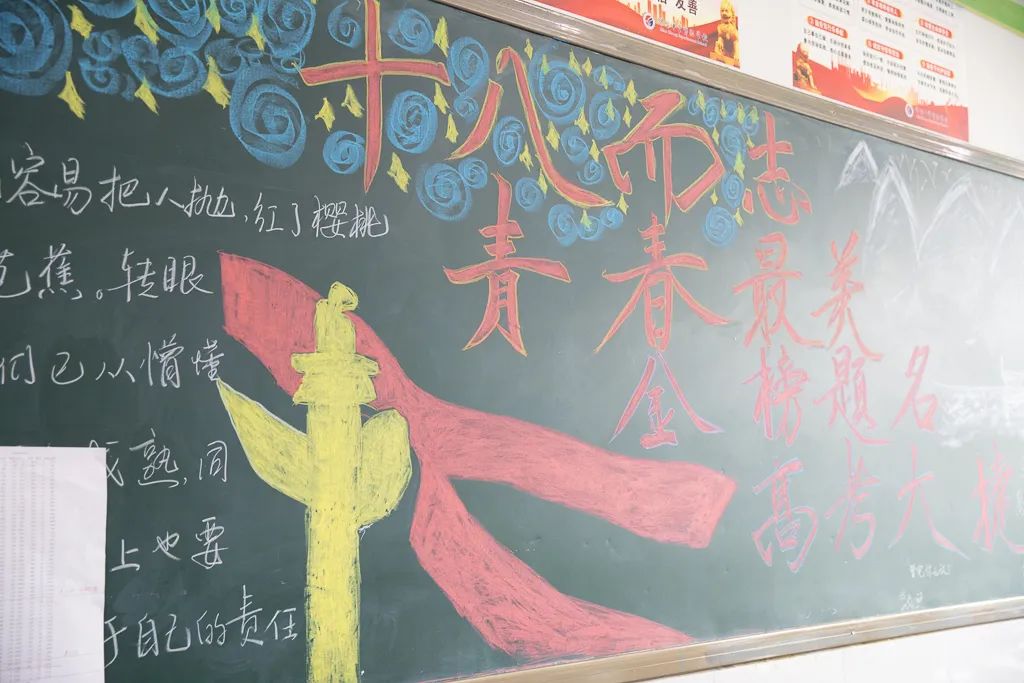 友善
十八而志
青春最美
金榜题名
高考大捷
容易把人抛,红了樱桃
芭蕉。转眼
们已从懵懂
成熟,同
上也要
于自己的责任